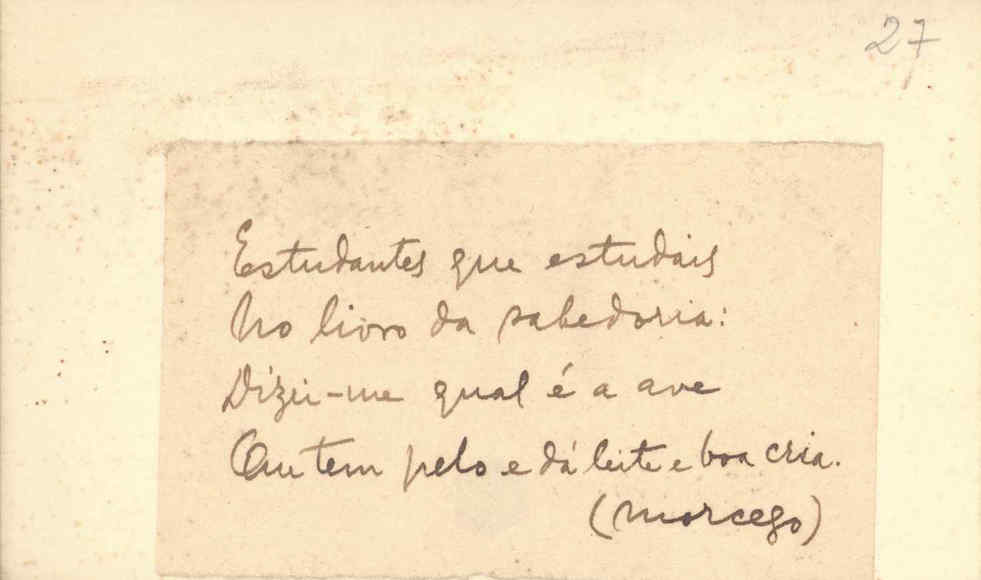 27
Estudantes que estudais
No livro da sabedoria:
Dizei-me qual é a ave
Que tem pelo e dá leite e boa cria.
(morcego)